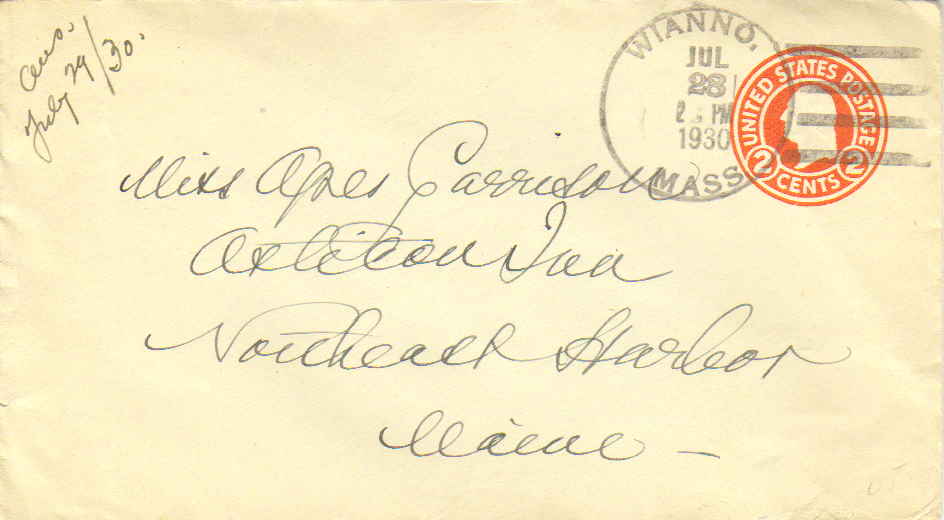 ans.
July 29/30.
WIANNO.
JUL
28
PM
1930
MASS.
UNITED STATES POSTAGE
2 CENTS 2
Miss Agnes Garrison
Asticou Inn
Northeast Harbor
Maine –